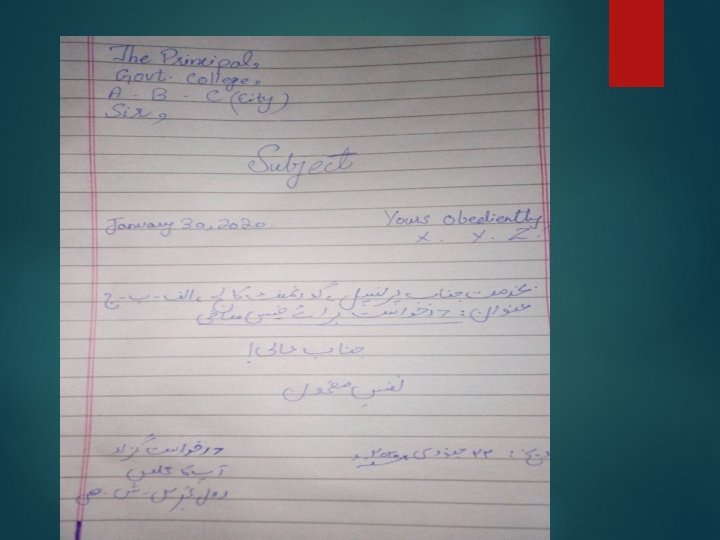 The Principal,
Govt. College.
A. B. C (City)
Sir,
Subject
January 30, 2020. Yours Obediently
X. Y. Z.
بخدمت جناب پرنسپل، گورنمنٹ کالج، الف۔ب۔ج
عنوان: درخواست برائے فیس معافی
جناب عالی!
نفسِ مضمون
۲۳ جنوری ۲۰۲۰ء درخواست گزار
آپ کا مخلص
رول نمبر س۔ش۔ص